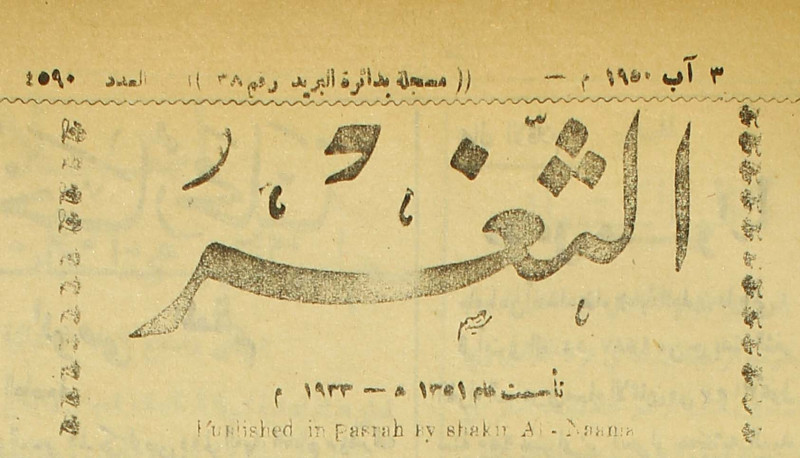 ٣ آب ١٩٥٠ م — (( مسجلة بدائرة البريد رقم ٣٨ )) العدد ٤٥٩٠
الثَّغْر
تأسست عام ١٣٥١ ه — ١٩٣٣ م
Published in Basrah By shakir Al - Naama